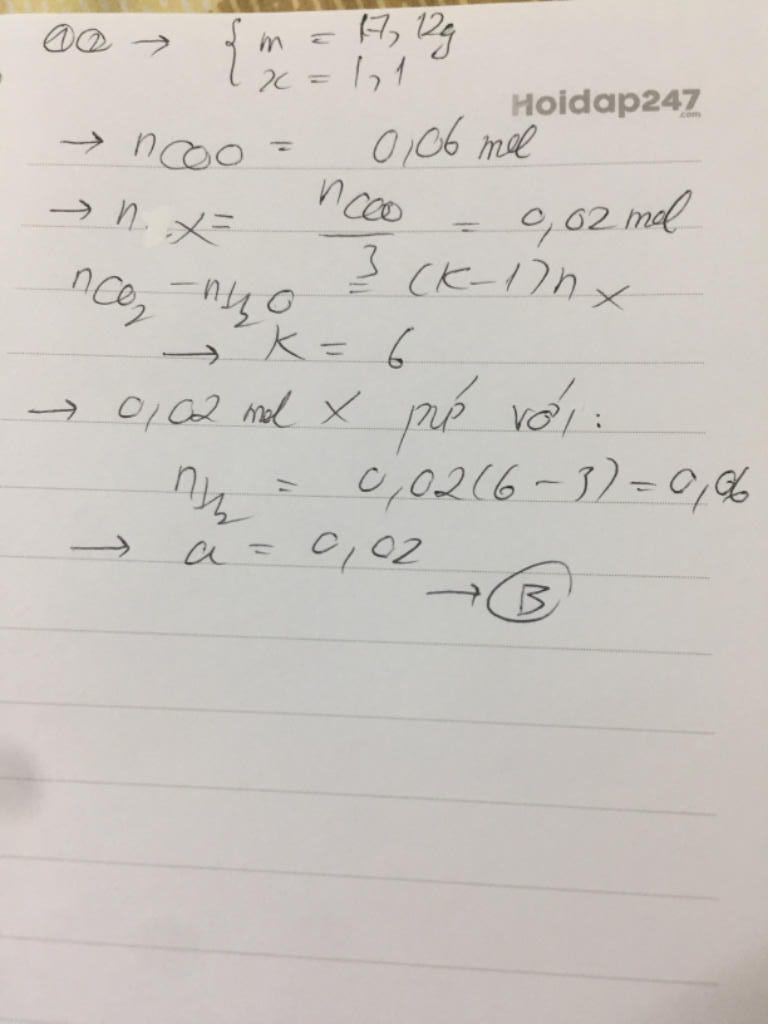 ①② → { m = 17,12g
x = 1,1
Hoidap247
.com
→ nCOO = 0,06 mol
→ n X = nCOO / 3 = 0,02 mol
nCO2 - nH2O = (K-1) n X
→ K = 6
→ 0,02 mol X pứ với:
nH2 = 0,02(6-3) = 0,06
→ a = 0,02
→ B